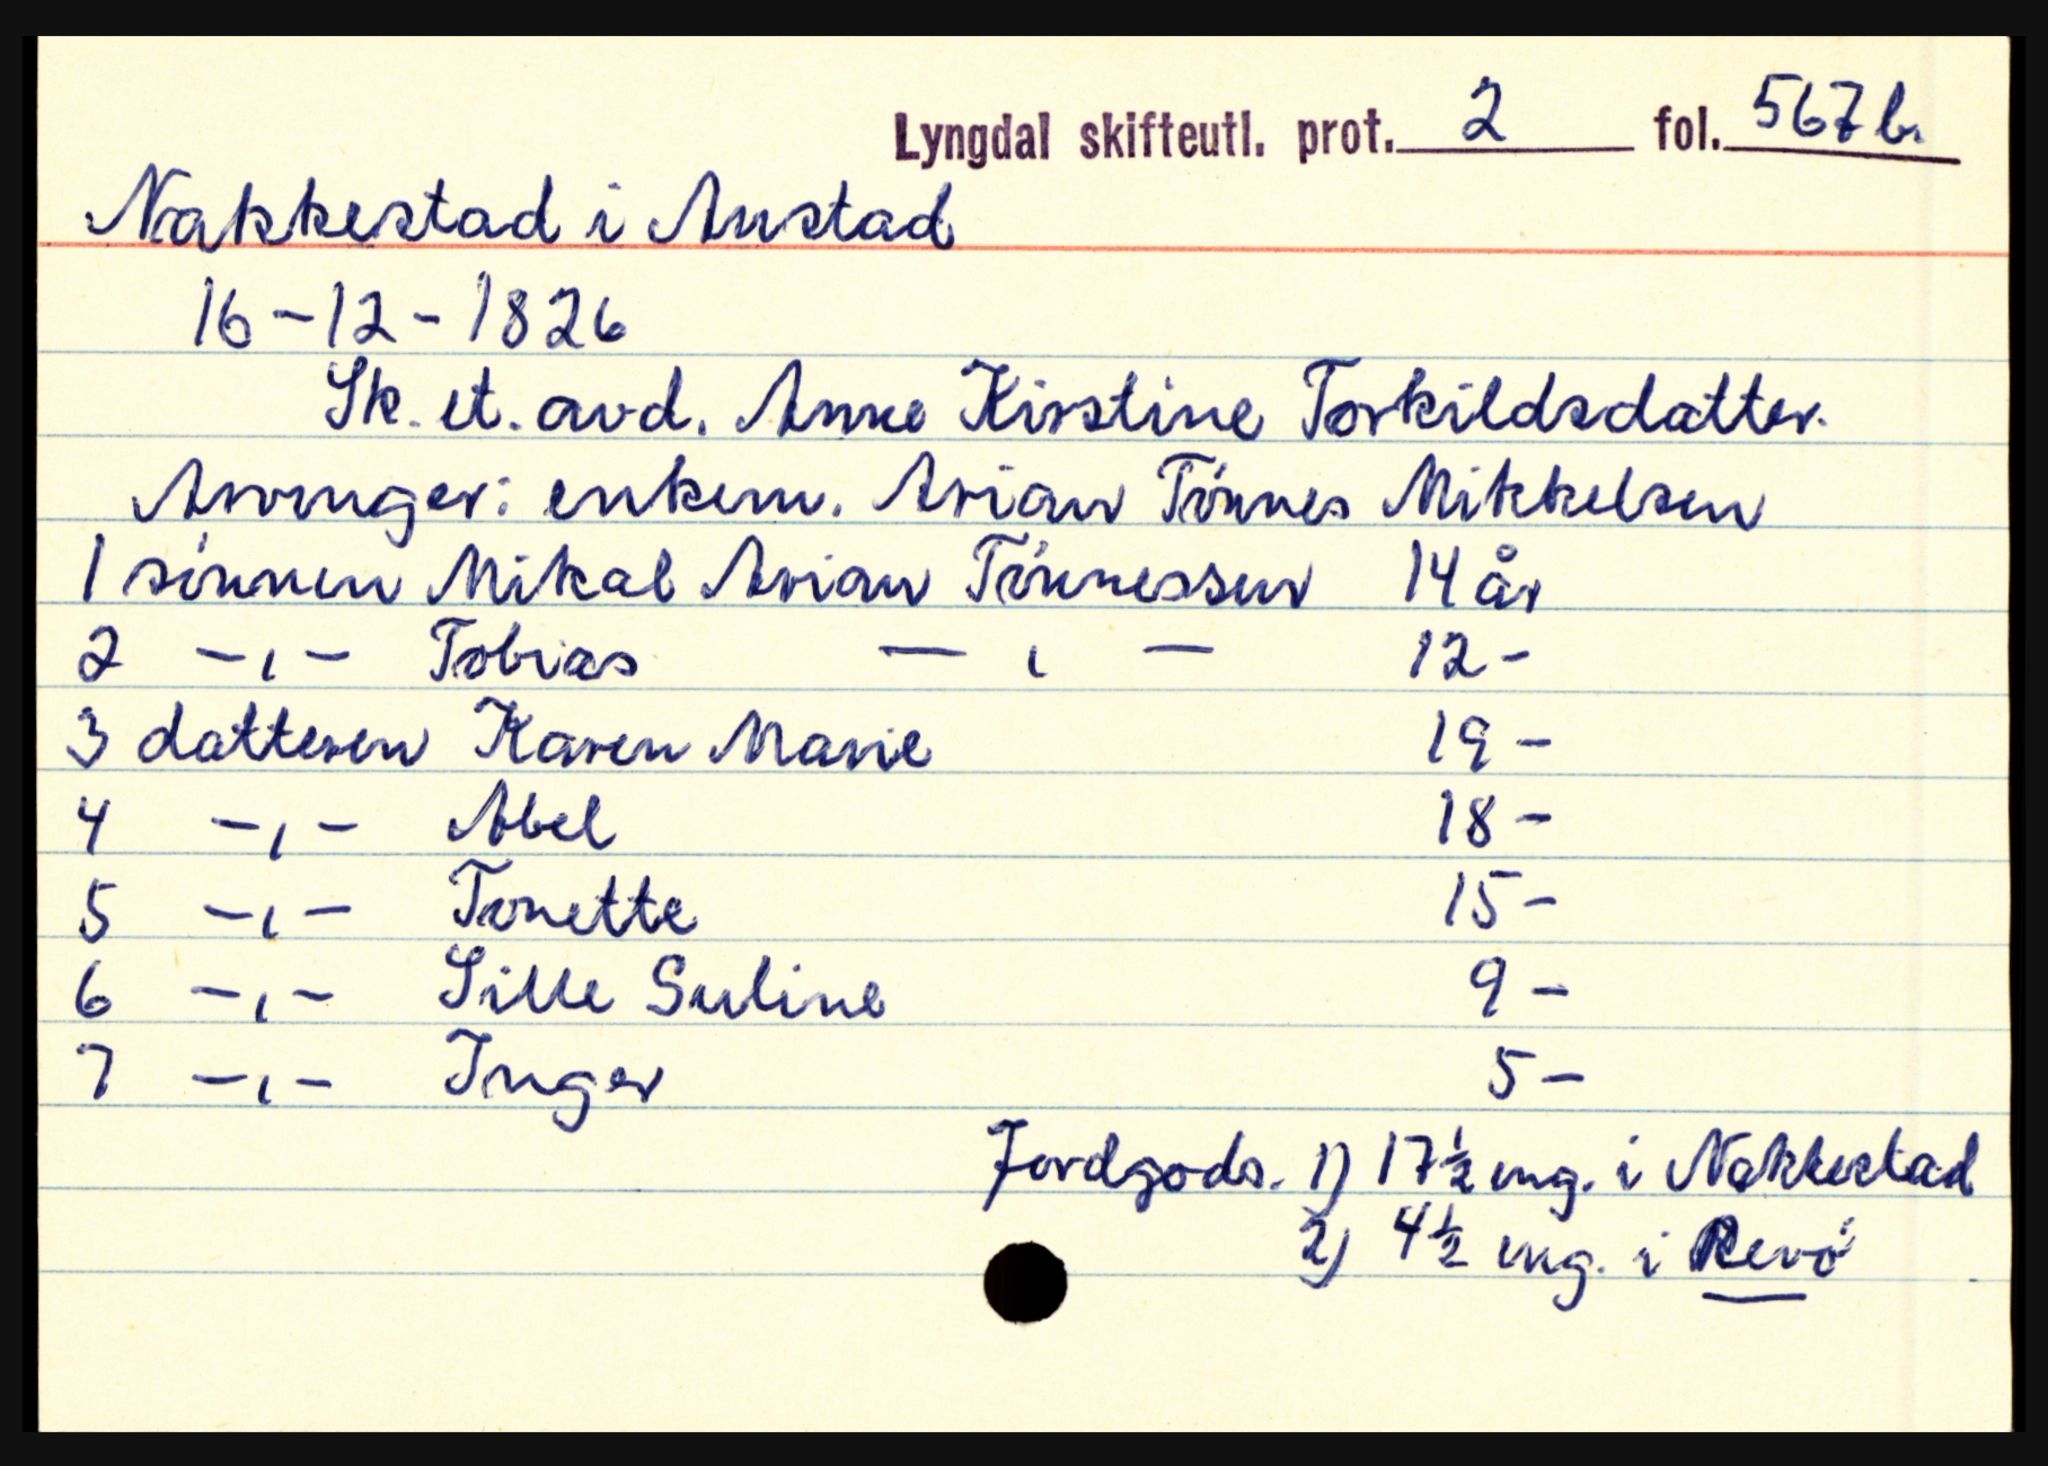 Lyngdal skifteutl. prot. 2 fol. 567 b.
Nakkestad i Austad
16-12-1826
Sk. et. avd. Anne Kirstine Torkildsdatter.
Arvinger: enkem. Arian Tónnes Mikkelsen
1 sónnen Mikal Arian Tónnessen 14 år
2 -,- Tobias - , - 12 -
3 datteren Karen Marie 19 -
4 -,- Abel 18 -
5 -,- Tonette 15 -
6 -,- Sille Suline 9 -
7 -,- Inger 5 -
Jordgods. 1) 17½ mg. i Nakkestad
2) 4½ mg. i Revó